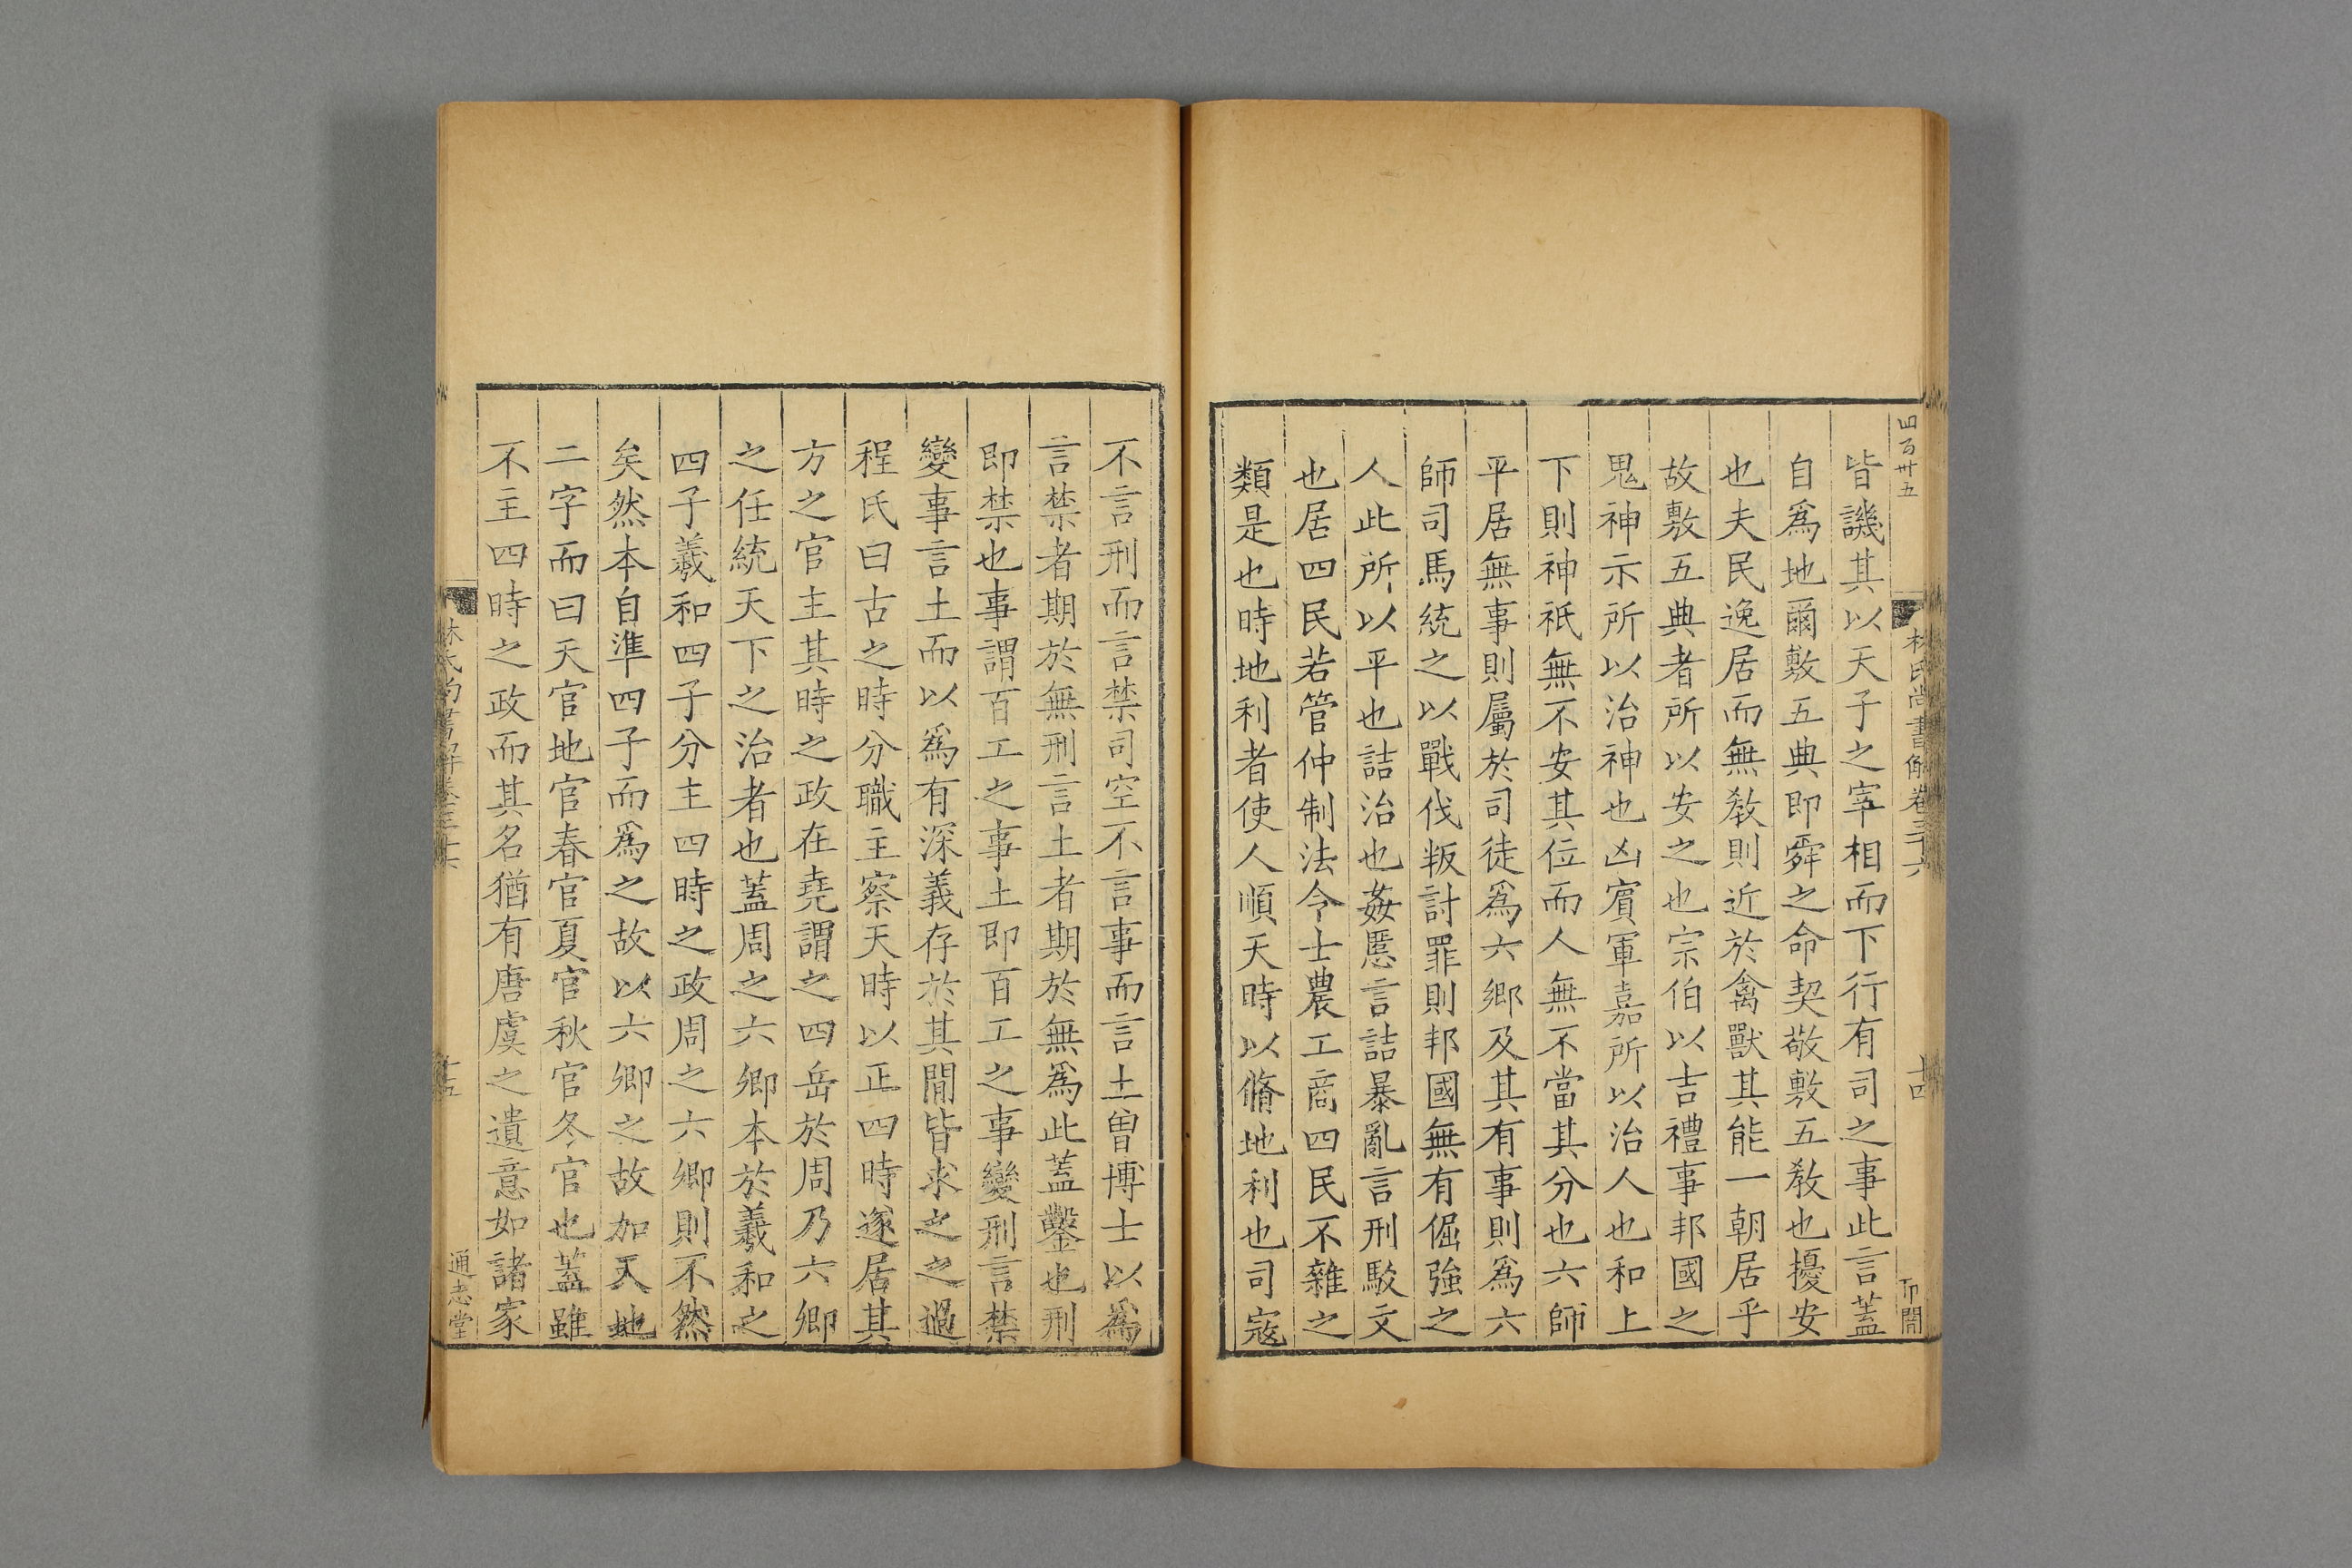 四百卅五
林氏尚書解卷三十六
十四
皆譏其以天子之宰相而下行有司之事此言蓋
自爲地爾敷五典即舜之命契敬敷五敎也擾安
也夫民逸居而無敎則近於禽獸其能一朝居乎
故敷五典者所以安之也宗伯以吉禮事邦國之
鬼神示所以治神也凶賔軍嘉所以治人也和上
下則神祇無不安其位而人無不當其分也六師
平居無事則屬於司徒爲六鄉及其有事則爲六
師司馬統之以戰伐叛討罪則邦國無有倔強之
人此所以平也詰治也姦慝言詰暴亂言刑駁文
也居四民若管仲制法令士農工商四民不雜之
類是也時地利者使人順天時以脩地利也司寇
不言刑而言禁司空不言事而言土曽博士以爲
言禁者期於無刑言土者期於無爲此蓋鑿也刑
即禁也事謂百工之事土即百工之事變刑言禁
變事言土而以爲有深義存於其閒皆求之之過
程氏曰古之時分職主察天時以正四時遂居其
方之官主其時之政在堯謂之四岳於周乃六卿
之任統天下之治者也蓋周之六卿本於羲和之
四子羲和四子分主四時之政周之六卿則不然
矣然本自準四子而爲之故以六卿之故加天地
二字而曰天官地官春官夏官秋官冬官也蓋雖
不主四時之政而其名猶有唐虞之遺意如諸家
林氏尚書解卷三十六
十五
通志堂